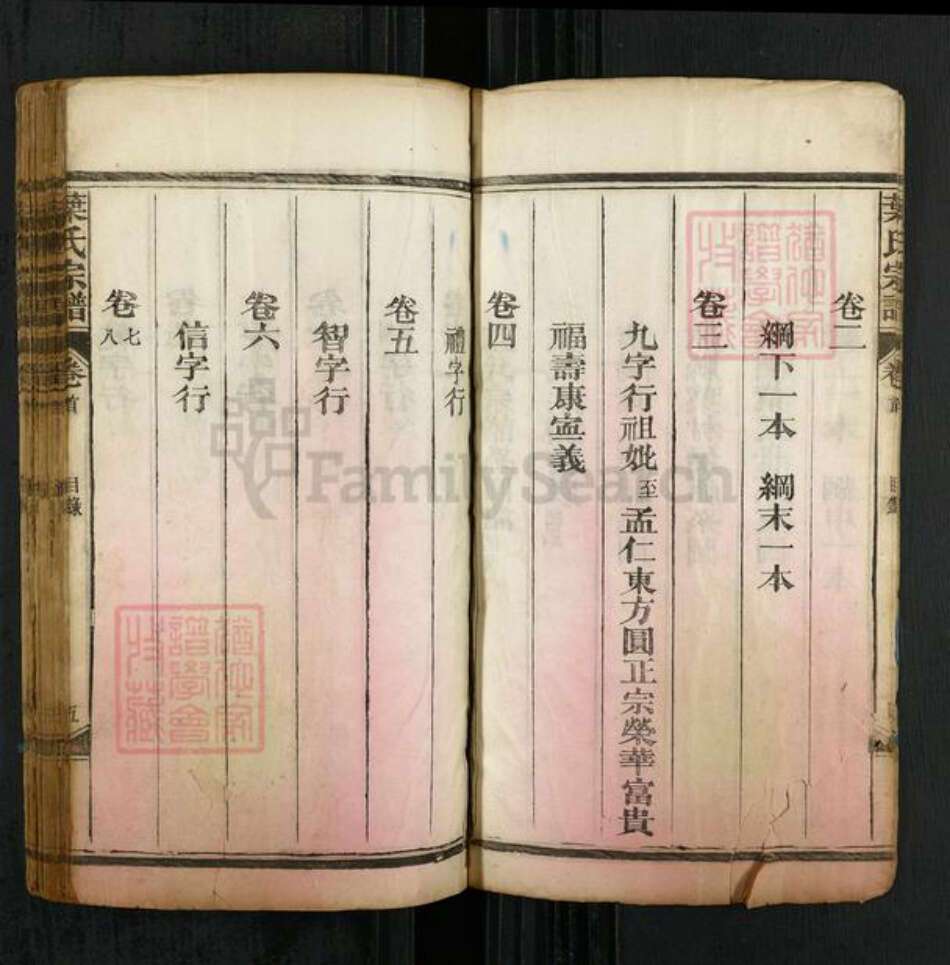 葉氏宗譜
卷首
目錄
卷二
綱下一本 綱末一本
卷三
九字行祖妣至孟仁東方圓正宗榮華富貴
福壽康寧義
卷四
禮字行
卷五
智字行
卷六
信字行
卷七八
葉氏宗譜
卷首
目錄
五
FamilySearch
譜學會